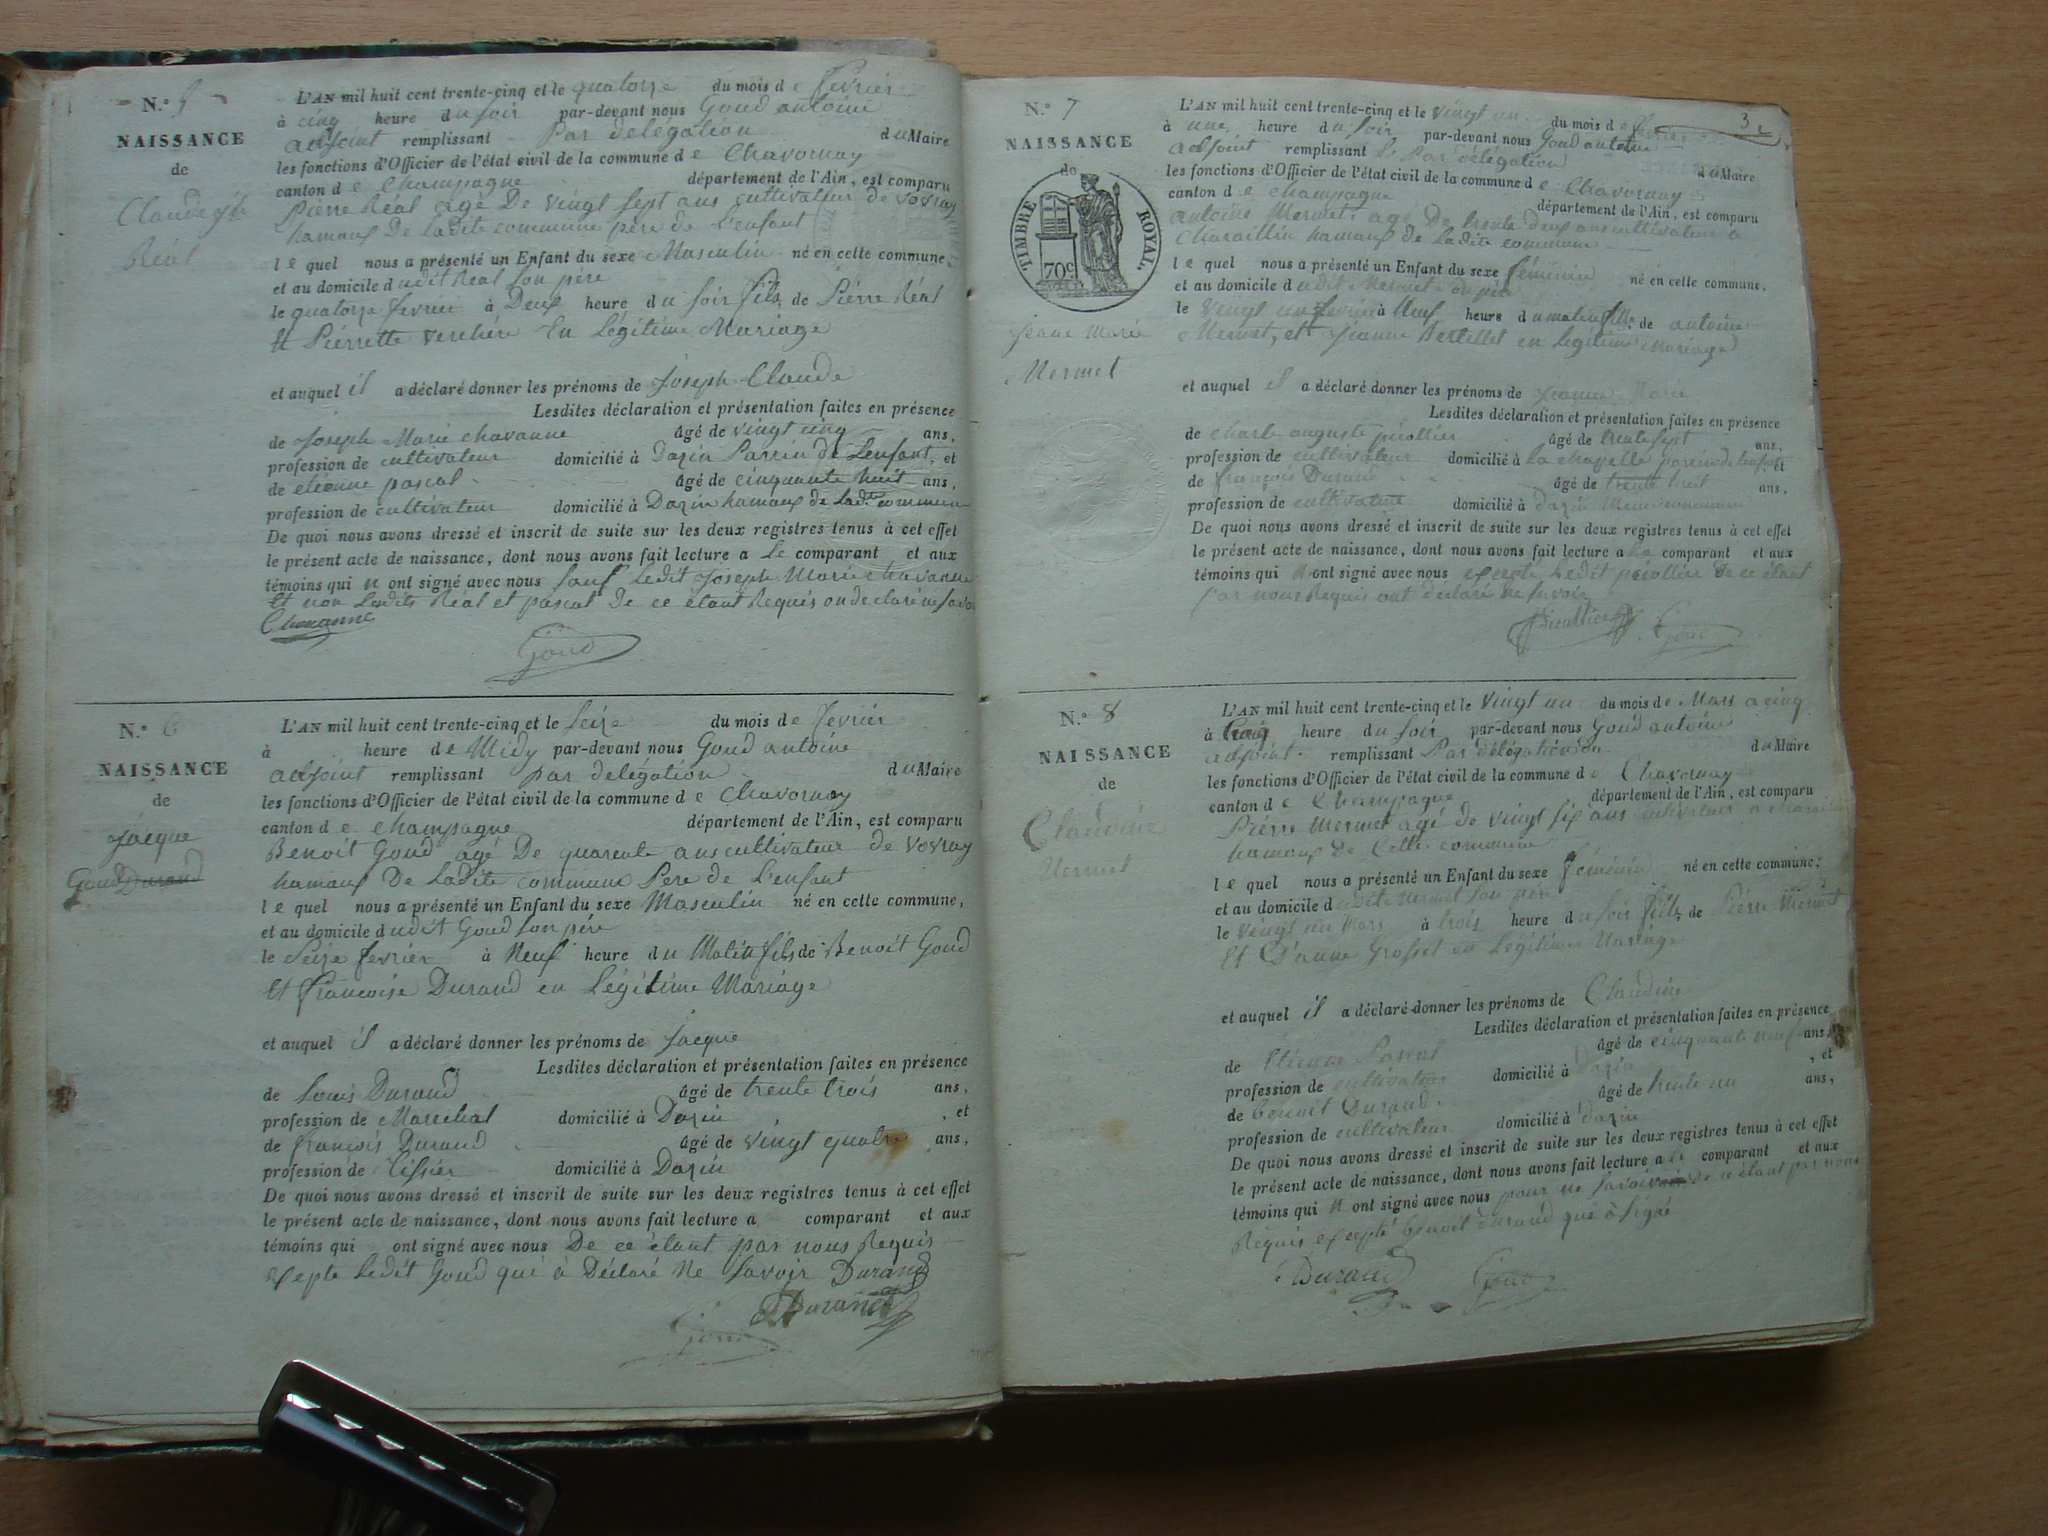 N.º 5
NAISSANCE
de
Claude jph
Réal
L'AN mil huit cent trente-cinq et le quatorze du mois de fevrier
à cinq heure du soir par-devant nous Goud antoine
adjoint remplissant par délégation du Maire
les fonctions d'Officier de l'état civil de la commune de Chavornay
canton de Champagne département de l'Ain, est comparu
Pierre Réal agé De vingt sept ans cultivateur de vovray
hamaux De Ladite commune père de L'enfant
le quel nous a présenté un Enfant du sexe Masculin né en cette commune,
et au domicile dudit Réal son père
le quatorze fevrier à Deux heure du soir fils de Pierre Réal
Et Pierrette verchère En Légitime Mariage
et auquel il a déclaré donner les prénoms de Joseph Claude
Lesdites déclaration et présentation faites en présence
de Joseph Marie chavanne âgé de vingt cinq ans,
profession de cultivateur domicilié à Dazin Parrin de L'enfant, et
de etienne pascal âgé de cinquante huit ans,
profession de cultivateur domicilié à Dazin hamaux de Ladte commune
De quoi nous avons dressé et inscrit de suite sur les deux registres tenus à cet effet
le présent acte de naissance, dont nous avons fait lecture a Le comparant et aux
témoins qui n ont signé avec nous sauf Ledit Joseph Marie chavanne
Et non Lesdits Réal et pascal De ce étant Requis on declaré ne savoir
Chavanne
Goud
N.º 6
NAISSANCE
de
Jacque
Goud Durand
L'AN mil huit cent trente-cinq et le seize du mois de fevrier
à heure de Midy par-devant nous Goud antoine
adjoint remplissant par délégation du Maire
les fonctions d'Officier de l'état civil de la commune de Chavornay
canton de Champagne département de l'Ain, est comparu
Benoit Goud agé De quarente ans cultivateur de vovray
hamaux De Ladite commune Pere de L'enfant
le quel nous a présenté un Enfant du sexe Masculin né en cette commune,
et au domicile dudit Goud son père
le seize fevrier à Neuf heure du Matin fils de Benoit Goud
Et françoise Durand en Légitime Mariage
et auquel il a déclaré donner les prénoms de Jacque
Lesdites déclaration et présentation faites en présence
de Louis Durand âgé de trente trois ans,
profession de Marechal domicilié à Dazin , et
de françois Durand âgé de vingt quatre ans,
profession de tissier domicilié à Dazin
De quoi nous avons dressé et inscrit de suite sur les deux registres tenus à cet effet
le présent acte de naissance, dont nous avons fait lecture a comparant et aux
témoins qui ont signé avec nous De ce étant par nous Requis
Excepte Ledit Goud qui à Déclaré Ne savoir Durand
Durand
Goud
N.º 7
NAISSANCE
de
TIMBRE ROYAL
70c
Jeanne Marie
Mermet
3
L'AN mil huit cent trente-cinq et le vingt un du mois de fevrier
à une heure du soir par-devant nous Goud antoine
adjoint remplissant Par délégation du Maire
les fonctions d'Officier de l'état civil de la commune de Chavornay
canton de Champagne département de l'Ain, est comparu
antoine Mermet agé De trente deux ans cultivateur a
Charaillin hamaux de Ladite commune
le quel nous a présenté un Enfant du sexe féminin né en cette commune,
et au domicile dudit Mermet son père
le vingt un fevrier à Neuf heure du matin fille de antoine
Mermet, et Jeanne Bertellet en légitime Mariage
et auquel il a déclaré donner les prénoms de Jeanne Marie
Lesdites déclaration et présentation faites en présence
de Charle auguste pérollier âgé de trente sept ans,
profession de cultivateur domicilié à La chapelle parrin de L'enfant et
de françois Durand âgé de trente huit ans,
profession de cultivateur domicilié à Dazin Meme commune
De quoi nous avons dressé et inscrit de suite sur les deux registres tenus à cet effet
le présent acte de naissance, dont nous avons fait lecture a Le comparant et aux
témoins qui n ont signé avec nous excepté Ledit pérollier De ce étant
par nous Requis ont déclaré ne savoir
Goud
N.º 8
NAISSANCE
de
Claudine
Mermet
L'AN mil huit cent trente-cinq et le vingt un du mois de Mars a cinq
à heure du soir par-devant nous Goud antoine
adjoint remplissant Par délégation du Maire
les fonctions d'Officier de l'état civil de la commune de Chavornay
canton de Champagne département de l'Ain, est comparu
Pierre Mermet agé de vingt six ans cultivateur a
hamaux De Cette commune
le quel nous a présenté un Enfant du sexe féminin né en cette commune,
et au domicile dudit Mermet son père
le vingt un Mars à trois heure du soir fille de Pierre Mermet
Et Jeanne Grosset en Légitime Mariage
et auquel il a déclaré donner les prénoms de Claudine
Lesdites déclaration et présentation faites en présence
de Etienne Pascal âgé de cinquante neuf ans,
profession de cultivateur domicilié à Dazin , et
de benoit Durand âgé de trente un ans,
profession de cultivateur domicilié à Dazin
De quoi nous avons dressé et inscrit de suite sur les deux registres tenus à cet effet
le présent acte de naissance, dont nous avons fait lecture a Le comparant et aux
témoins qui n ont signé avec nous pour ne savoir de ce étant par nous
Requis excepté benoit durand qui à signé
Durand Goud